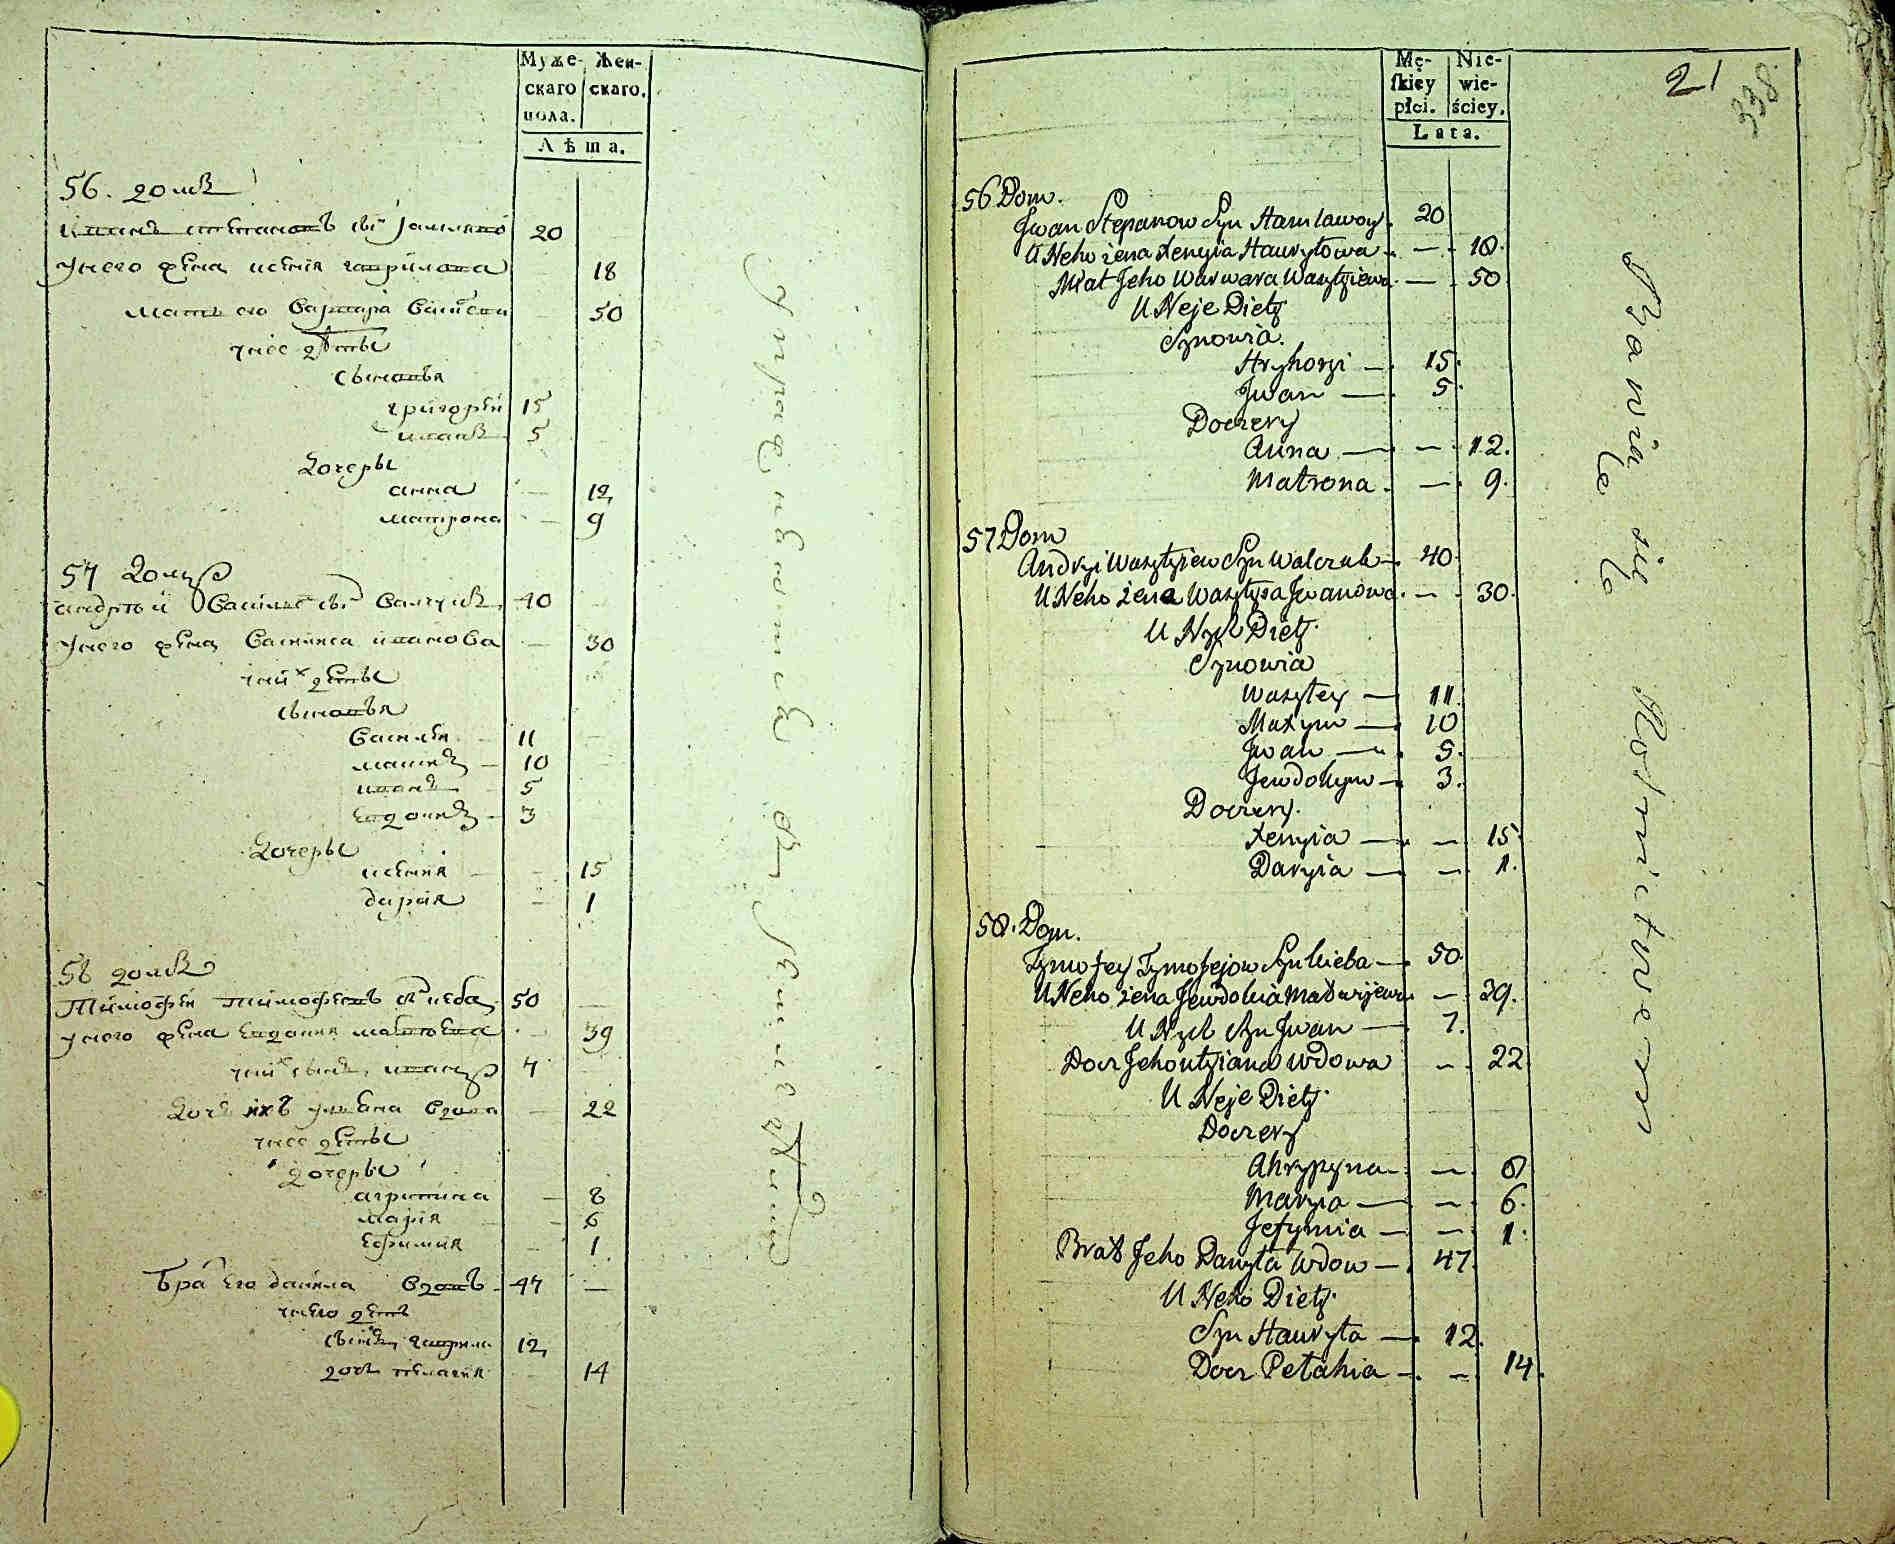 Муже- Жен-
скаго скаго.
пола.
Лѣта.
56. домъ
Иванъ Степановъ сынъ 20
У него жена Ксенія Гаврилова 18
Мать его Варвара Василева 50
У нее дѣты
Сыновья
Григорѣй 15
Иванъ 5
Дочеры
Анна — 12
Матрона — 9
57 домъ
Андрѣй Василевъ сынъ Валчукъ 40
У него жена Василиса Иванова — 30
У нихъ дѣты
Сыновья
Василѣй 11
Максимъ 10
Иванъ 5
Евдокимъ 3
Дочеры
Ксенія — 15
Дарія — 1
58 домъ
Тимофѣй Тимофеевъ сынъ Кеба 50 —
У него жена Евдокия Матвѣева — 39
У нихъ сынъ Иванъ 7
Дочь ихъ Уляна вдова — 22
У нее дѣты
Дочеры
Агрипина — 8
Марія — 6
Ефимия — 1
Братъ его Данила вдовъ 47 —
У него дѣты
Сынъ Гаврила 12
Дочь Пелагия — 14
Упражняются в земледелии
Mę- Nie-
skiey wie-
płci. ściey.
Lata.
21
338
56 Dom.
Jwan Stepanow Syn Stanisławoy. 20
U Neho żena Xenyia Hauryłowa — 18.
Mat Jeho Warwara Wasylyiewa — 50
U Neje Diety
Synowia.
Hryhoryi — 15.
Jwan — 5.
Doczery
Anna — — 12.
Matrona — — 9.
57 Dom
Andryi Wasylyiew Syn Walczuk — 40.
U Neho żena Wasylysa Jwanowa. — 30.
U Nych Diety.
Synowia
Wasyley — 11.
Maxym — 10
Jwan — 5.
Jewdokym — 3.
Doczery.
Xenyia — — 15.
Daryia — — 1.
58. Dom.
Tymofey Tymofejow Syn Kieba — 50.
U Neho żena Jewdokia Matwijewa — 39.
U Nych Syn Jwan — 7.
Docz Jeho Ulyiana Wdowa — 22
U Neje Diety.
Doczery
Ahrypyna — — 8
Marya — — 6.
Jefymia — — 1.
Brat Jeho Danyła Wdow — 47.
U Neho Diety.
Syn Hauryła — 12.
Docz Pełahia — — 14.
Bawią się
Rolnictwem